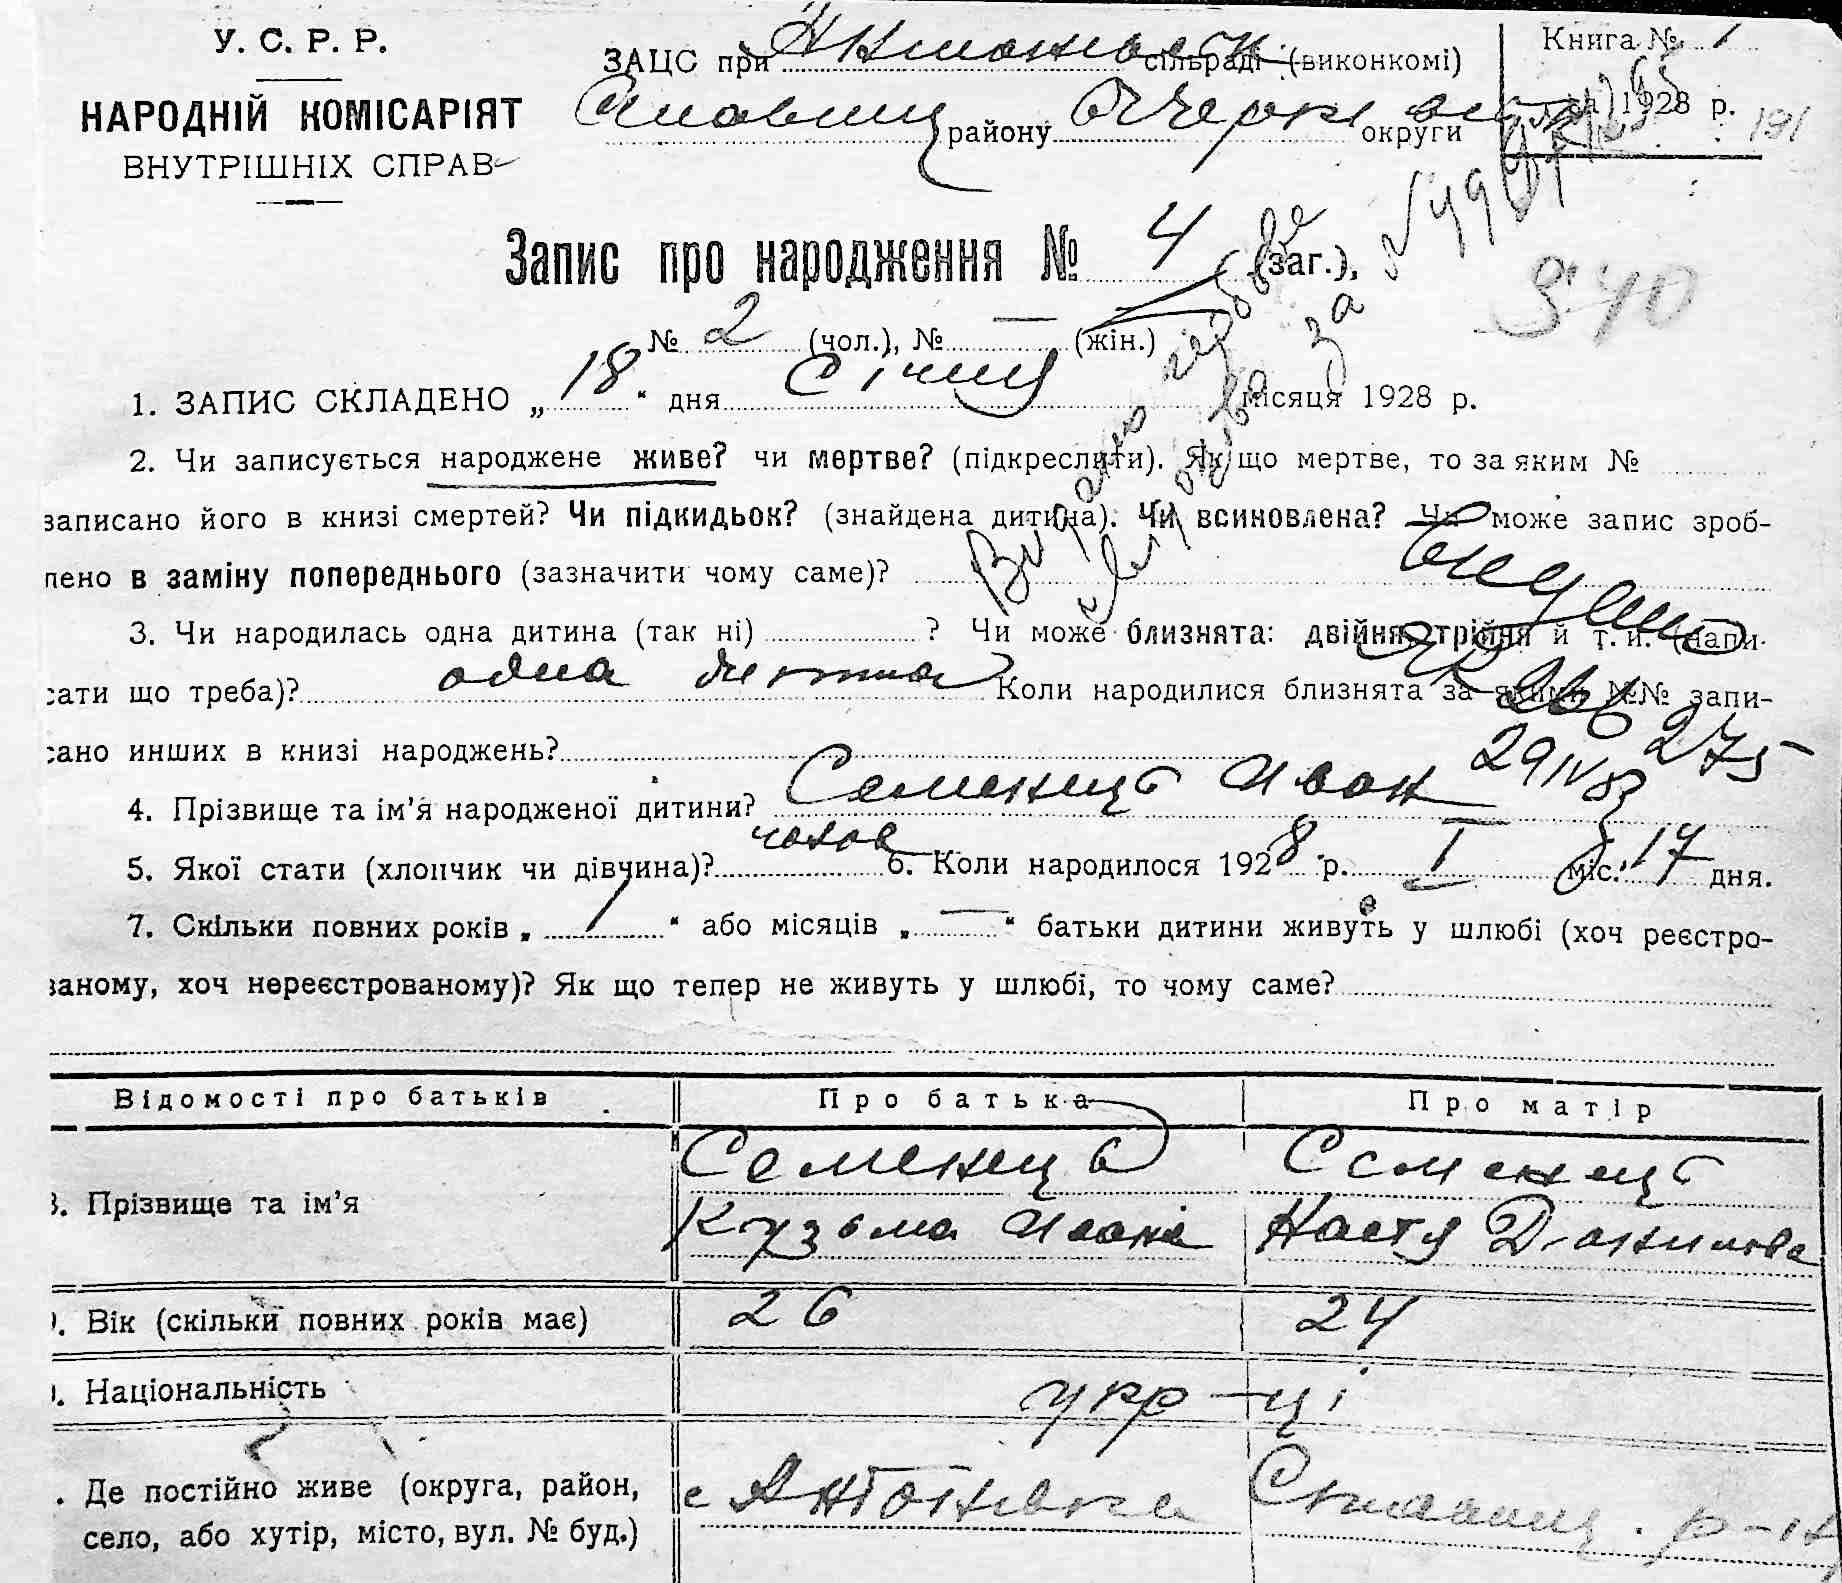 У. С. Р. Р.
НАРОДНІЙ КОМІСАРІЯТ
ВНУТРІШНІХ СПРАВ
ЗАЦС при сільраді (виконкомі)
району округи
Книга № 1
1928 р.
191
Запис про народження № 4 (заг.),
540
№ 2 (чол.), № — (жін.)
1. ЗАПИС СКЛАДЕНО „ 18 “ дня Січня місяця 1928 р.
2. Чи записується народжене живе? чи мертве? (підкреслити). Як що мертве, то за яким №
записано його в книзі смертей? Чи підкидьок? (знайдена дитина). Чи всиновлена? Чи може запис зроб-
лено в заміну попереднього (зазначити чому саме)?
Видано
за №
3. Чи народилась одна дитина (так ні) ? Чи може близнята: двійня, трійня й т. и. (напи-
сати що треба)? одна дитина Коли народилися близнята за якими №№ запи-
сано инших в книзі народжень?
275
29 IV 83
4. Прізвище та ім’я народженої дитини? Семенець Иван
5. Якої стати (хлопчик чи дівчина)? чолов 6. Коли народилося 1928 р. I міс. 17 дня.
7. Скільки повних років „ 1 “ або місяців „ — “ батьки дитини живуть у шлюбі (хоч реєстро-
ваному, хоч нереєстрованому)? Як що тепер не живуть у шлюбі, то чому саме?
Відомості про батьків Про батька Про матір
8. Прізвище та ім’я Семенець Семенець
Кузьма Ивано Настя Данилова
9. Вік (скільки повних років має) 26 24
. Національність укр-ці
. Де постійно живе (округа, район, с Антонівка р-ну
село, або хутір, місто, вул. № буд.)